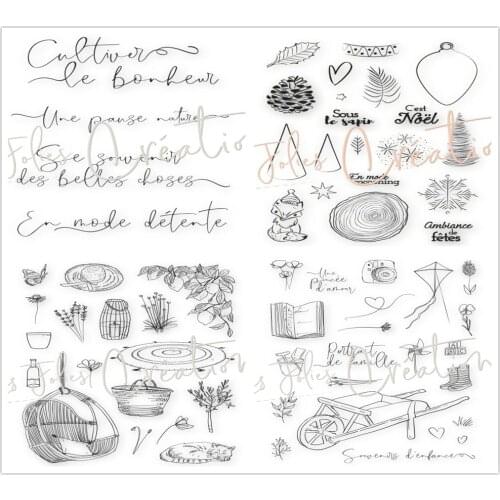 Cultiver
le bonheur
Une pause nature
Se souvenir
des belles choses
En mode détente
Sous
le sapin
C'est
Noël
En mode
Ambiance
de
fêtes
Folies Création
Folies Création
Une
pincée
d'amour
Portrait
de famille
Souvenirs d'enfance
s Folies Création
s Folies Création